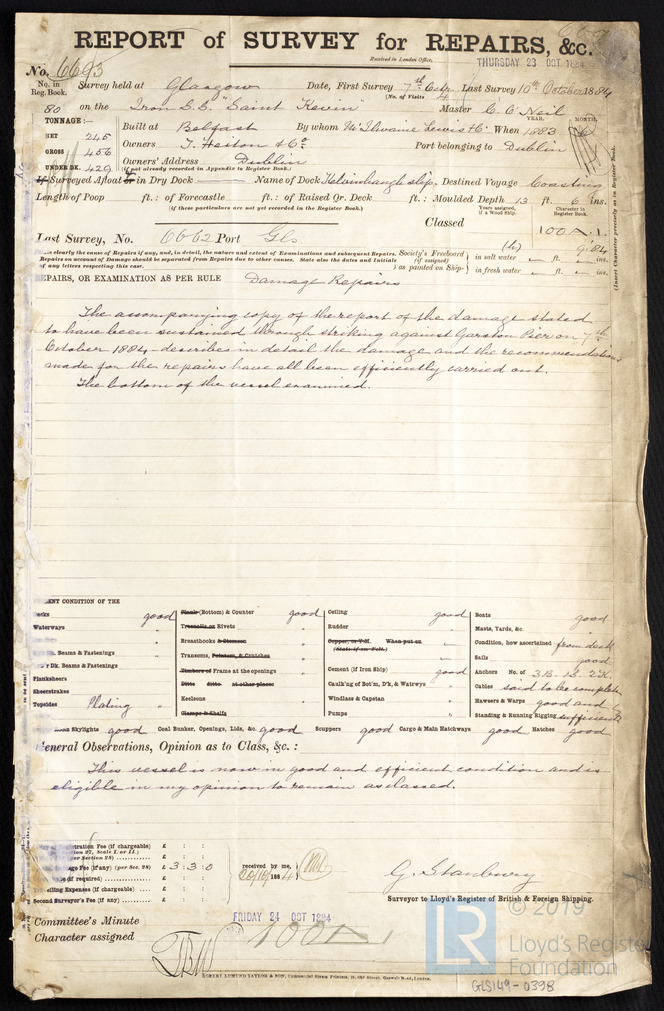 REPORT of SURVEY for REPAIRS, &c.
Received in London Office,
THURSDAY 23 OCT 1884
No. 6693
No. in Reg. Book.
Survey held at Glasgow Date, First Survey 7th Octr. Last Survey 10th October 1884
(No. of Visits 4)
80 on the Iron S.S. "Saint Kevin" Master C. O'Neil
TONNAGE:—
YEAR. MONTH.
NET 245
Built at Belfast By whom McIlwaine Lewis & Co. When 1883
GROSS 456
Owners T. Heiton & Co. Port belonging to Dublin
UNDER DK. 429
Owners' Address Dublin
(if not already recorded in Appendix to Register Book.)
If Surveyed Afloat or in Dry Dock Name of Dock Kelvinhaugh slip. Destined Voyage Coasting
Length of Poop ft.: of Forecastle ft.: of Raised Qr. Deck ft.: Moulded Depth 13 ft. 6 ins.
(if these particulars are not yet recorded in the Register Book.)
Years assigned, if a Wood Ship.
Character in Register Book.
Classed 100A.1.
Last Survey, No. 6662 Port Gls
9.84
Society's Freeboard (if assigned) as painted on Ship- in salt water ft. ins.
in fresh water ft. ins.
clearly the cause of Repairs if any, and, in detail, the nature and extent of Examinations and subsequent Repairs.
Repairs on account of Damage should be separated from Repairs due to other causes. State also the dates and Initials
of any letters respecting this case.
(Insert Character precisely as in Register Book.
REPAIRS, OR EXAMINATION AS PER RULE Damage Repairs
The accompanying copy of the report of the damage stated
to have been sustained through striking against Garston Pier on 7th
October 1884 describes in detail the damage and the recommendations
made for the repairs have all been efficiently carried out.
The bottom of the vessel examined.
ENT CONDITION OF THE
Decks good
Waterways "
Beams & Fastenings
Dk. Beams & Fastenings
Planksheers
Sheerstrakes
Topsides Plating "
Plank (Bottom) & Counter good
Treenails or Rivets "
Breasthooks & Stemson "
Transoms, Pointers, & Crutches "
Timbers of Frame at the openings "
Ditto ditto at other places
Keelsons "
Clamps & Shelfs
Ceiling good
Rudder "
Copper, or Y.M. When put on
(State if on Felt.)
Cement (if Iron Ship) good
Caulk'ng of Bot'm, D'k, & Watrwys "
Windlass & Capstan "
Pumps "
Boats good
Masts, Yards, &c. good
Condition, how ascertained from deck
Sails good
Anchors No. of 3B. 1S. 2K.
Cables said to be complete
Hawsers & Warps good and
Standing & Running Rigging sufficient
Skylights good Coal Bunker, Openings, Lids, &c. good Scuppers good Cargo & Main Hatchways good Hatches good
General Observations, Opinion as to Class, &c. :
This vessel is now in good and efficient condition and is
eligible in my opinion to remain as classed.
Registration Fee (if chargeable) £ : :
27, Scale I. or II.)
(per Section 28) £ : :
Fee (if any) (per Sec. 28) £ 3:3:0
(if required) £ : :
Travelling Expenses (if chargeable) £ : :
Second Surveyor's Fee (if any) £ : :
received by me,
20/10/1884
G. Stanbury
Surveyor to Lloyd's Register of British & Foreign Shipping.
Committee's Minute FRIDAY 24 OCT 1884
Character assigned 100A1
ROBERT EDMUND TAYLOR & SON,
© 2019
LR
Lloyd's Register
Foundation
GLS149-0398